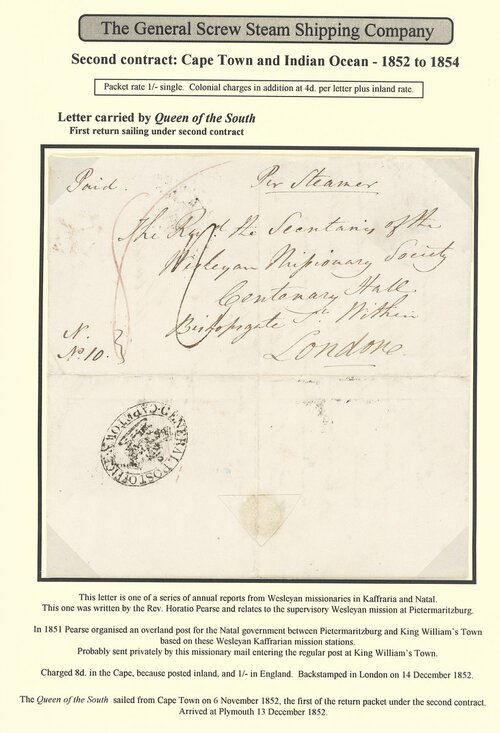 The General Screw Steam Shipping Company
Second contract: Cape Town and Indian Ocean - 1852 to 1854
Packet rate 1/- single. Colonial charges in addition at 4d. per letter plus inland rate.
Letter carried by Queen of the South
First return sailing under second contract
Paid.
Per Steamer
The Revd. the Secretaries of the
Wesleyan Missionary Society
Centenary Hall
Bishopsgate St. Within
London
N.
No 10.
GENERAL POST OFFICE CAPE TOWN
This letter is one of a series of annual reports from Wesleyan missionaries in Kaffraria and Natal.
This one was written by the Rev. Horatio Pearse and relates to the supervisory Wesleyan mission at Pietermaritzburg.
In 1851 Pearse organised an overland post for the Natal government between Pietermaritzburg and King William's Town
based on these Wesleyan Kaffrarian mission stations.
Probably sent privately by this missionary mail entering the regular post at King William's Town.
Charged 8d. in the Cape, because posted inland, and 1/- in England. Backstamped in London on 14 December 1852.
The Queen of the South sailed from Cape Town on 6 November 1852, the first of the return packet under the second contract.
Arrived at Plymouth 13 December 1852.